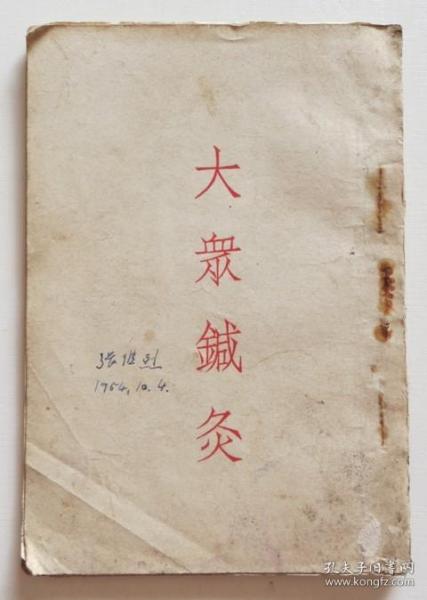 大眾鍼灸
张维烈
1954.10.4.
孔夫子旧书网
www.kongfz.com